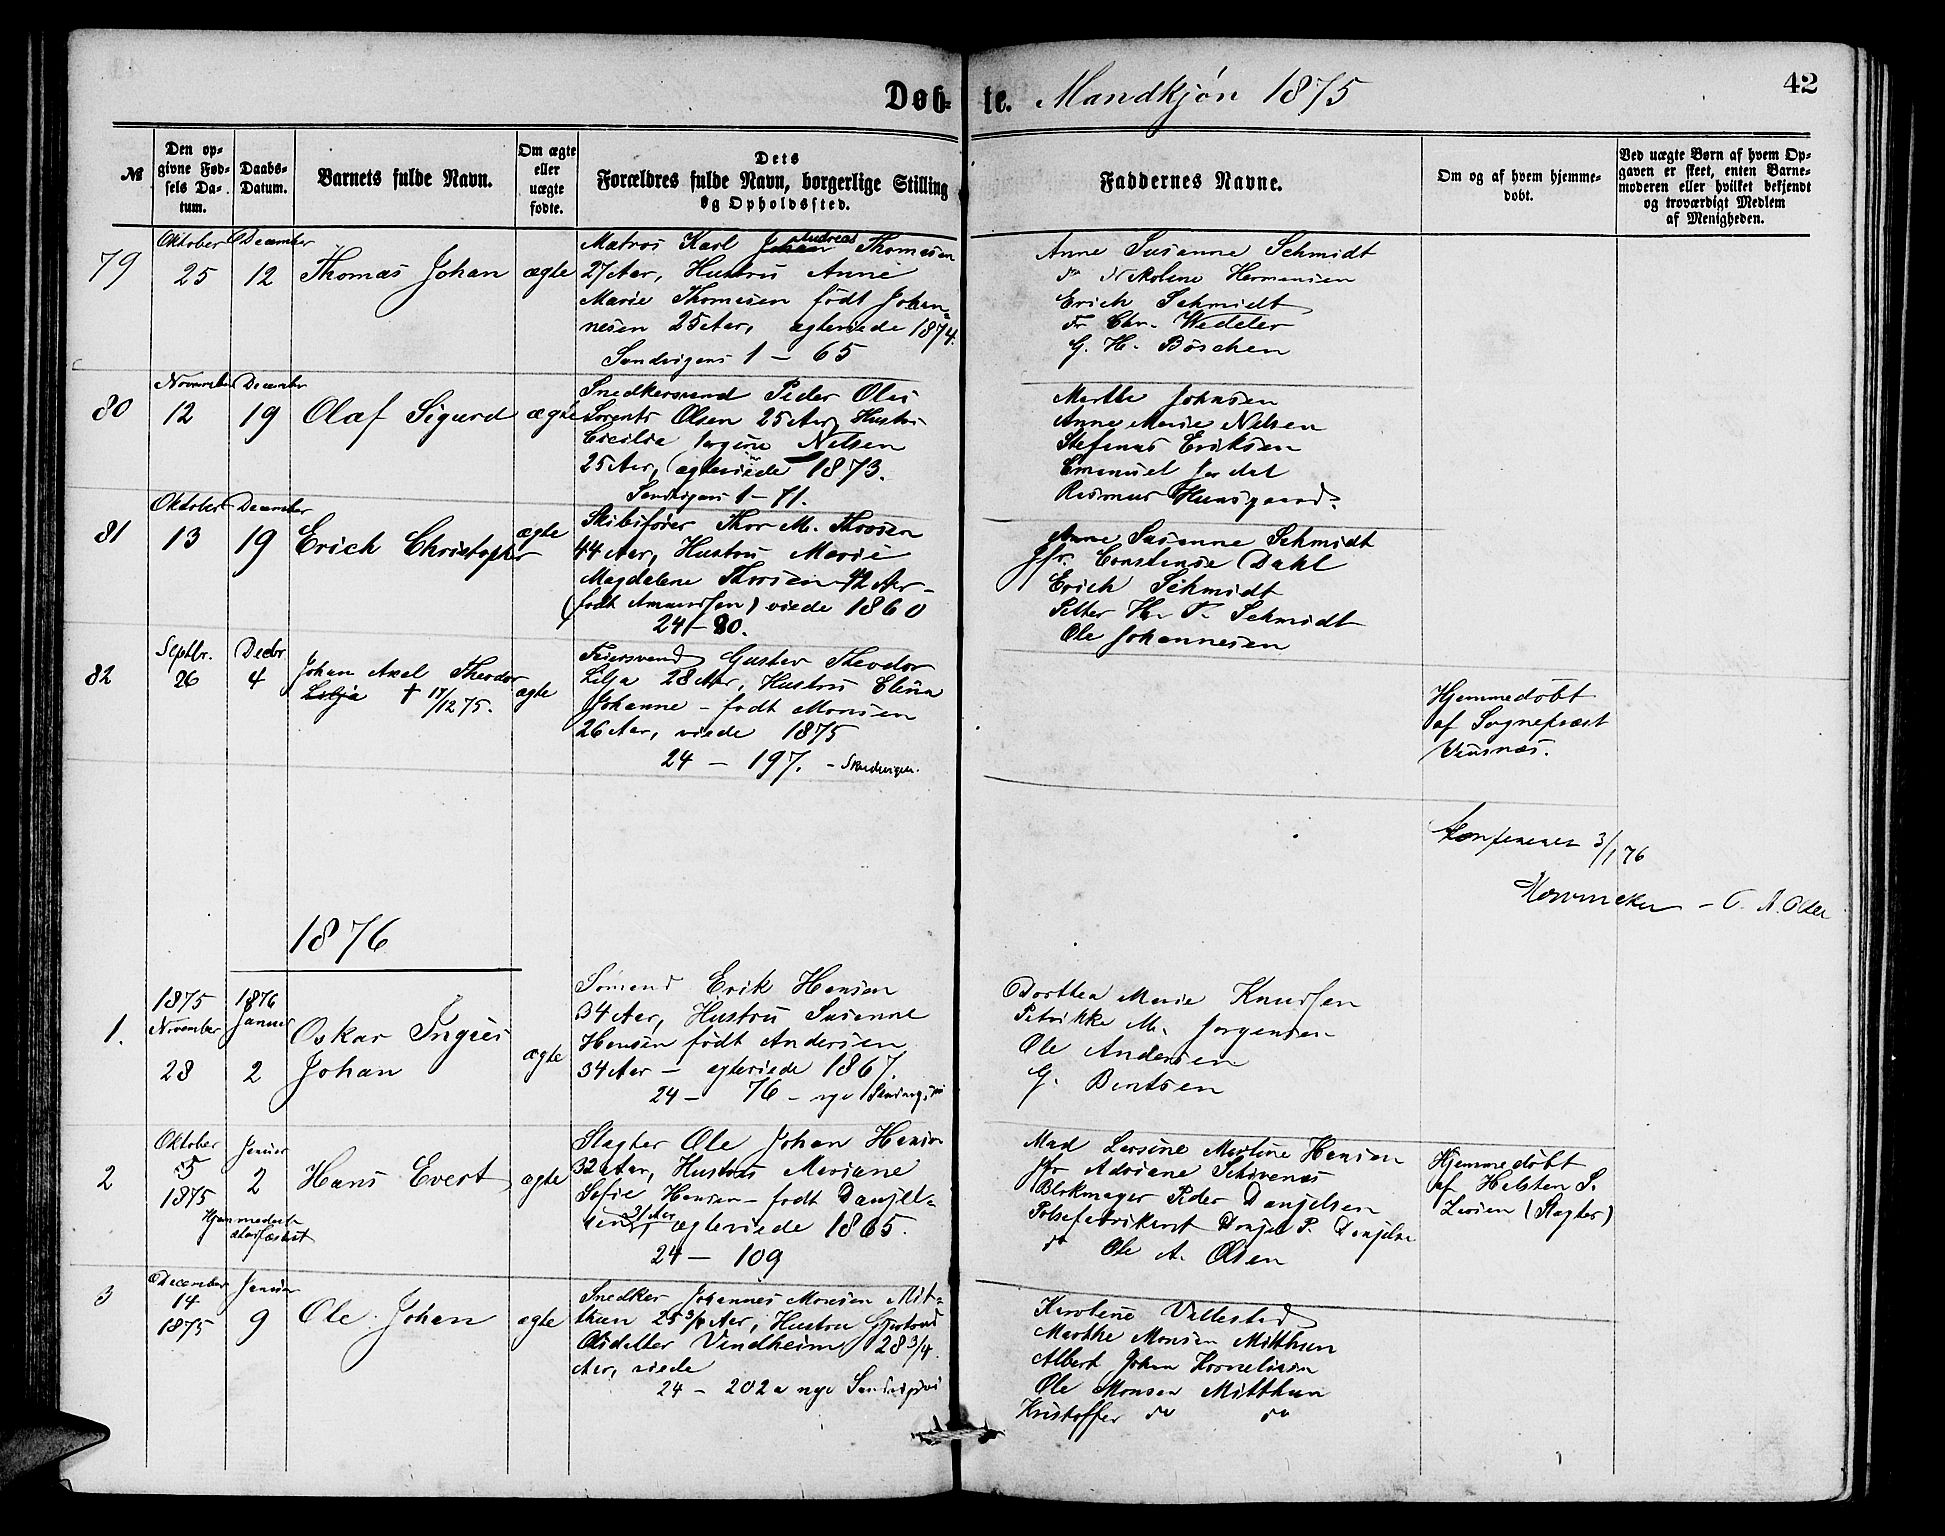 Døb-te. Mandkjøn 1875
42
№
Den op-
givne Fød-
sels Da-
tum.
Daabs-
Datum.
Barnets fulde Navn.
Om ægte
eller
uægte
fødte.
Dets
Forældres fulde Navn, borgerlige Stilling
og Opholdssted.
Faddernes Navne.
Om og af hvem hjemme-
døbt.
Ved uægte Børn af hvem Op-
gaven er skeet, enten Barne-
moderen eller hvilket bekjendt
og troværdigt Medlem
af Menigheden.
79
Oktober
25
December
12
Thomas Johan
ægte
Matros Karl Johan Andreas Thomesen
27 Aar, Hustru Anne
Marie Thomesen født Johan-
nesen 25 Aar, egteviede 1874.
Sandvigens 1 - 65
Anne Susanne Schmidt
Nikoline Hermansen
Erich Schmidt
Fr Chr. Wedeler
G. H. Böschen
80
November
12
December
19
Olaf Sigurd
ægte
Snedkersvend Peder Olai
Lorents Olsen 25 Aar, Hustru
Cicilie Nilsen
25 Aar, egteviede 1873.
Sandvigens 1 - 71.
Marthe Johnsen
Anne Marie Nilsen
Stefanus Eriksen
Emanuel Jordal
Rasmus
81
Oktober
13
December
19
Erich Christopher
ægte
Skibsfører Thor M. Thorsen
44 Aar, Hustru Marie
Magdalene Thorsen 42 Aar
(født Amundsen) viede 1860
24 - 80.
Anne Susanne Schmidt
Jfr. Constance Dahl
Erich Schmidt
Petter H. Schmidt
Ole Johannesen
82
Septbr.
26
Decbr
4
Johan Axel Theodor
Lilja † 17/12 75.
ægte
Feiersvend Gustav Theodor
Lilja 28 Aar, Hustru Elina
Johanne - født Monsen
26 Aar, viede 1875
24 - 197. - Sandvigen.
Hjemmedøbt
af Sognepræst
Konfereret 3/1 76
1876
1.
1875
November
28
1876
Januar
2
Oskar Ingvar
Johan
ægte
Sømand Erik Hansen
34 Aar, Hustru Susanne
Hansen født Andersen
34 Aar - egteviede 1867.
24 - 76 - nye Sandvigsvei
Dorthea Marie Knudsen
Petrikke M. Jørgensen
Ole Andersen
G. Bentsen
2
Oktober
5
1875
Januar
2
Hjemmedøbt
Hans Evert
ægte
Slagter Ole Johan Hansen
32 Aar, Hustru Mariane
Sofie Hansen - født Danjel-
sen, 31 Aar egteviede 1865.
24 - 109
Mad Larsine Martine Hansen
Jfr Adriane
Blokmager Peder Danjelsen
Pølsefabrikant Danjel P. Danjelsen
do Ole A. Olsen
Hjemmedøbt
af Helsten S.
Larsen (Slagter)
3
December
14
1875
Januar
9
Ole Johan
ægte
Snedker Johannes Monsen Mit-
thun 25 3/4 Aar, Hustru Gjertrud
Olsdatter Vindheim 28 3/4
Aar, viede
24 - 202a nye Sandvigsvei
Karoline Vallestad
Marthe Monsen Mitthun
Albert Johan Korneliusen
Ole Monsen Mitthun
Kristoffer do do